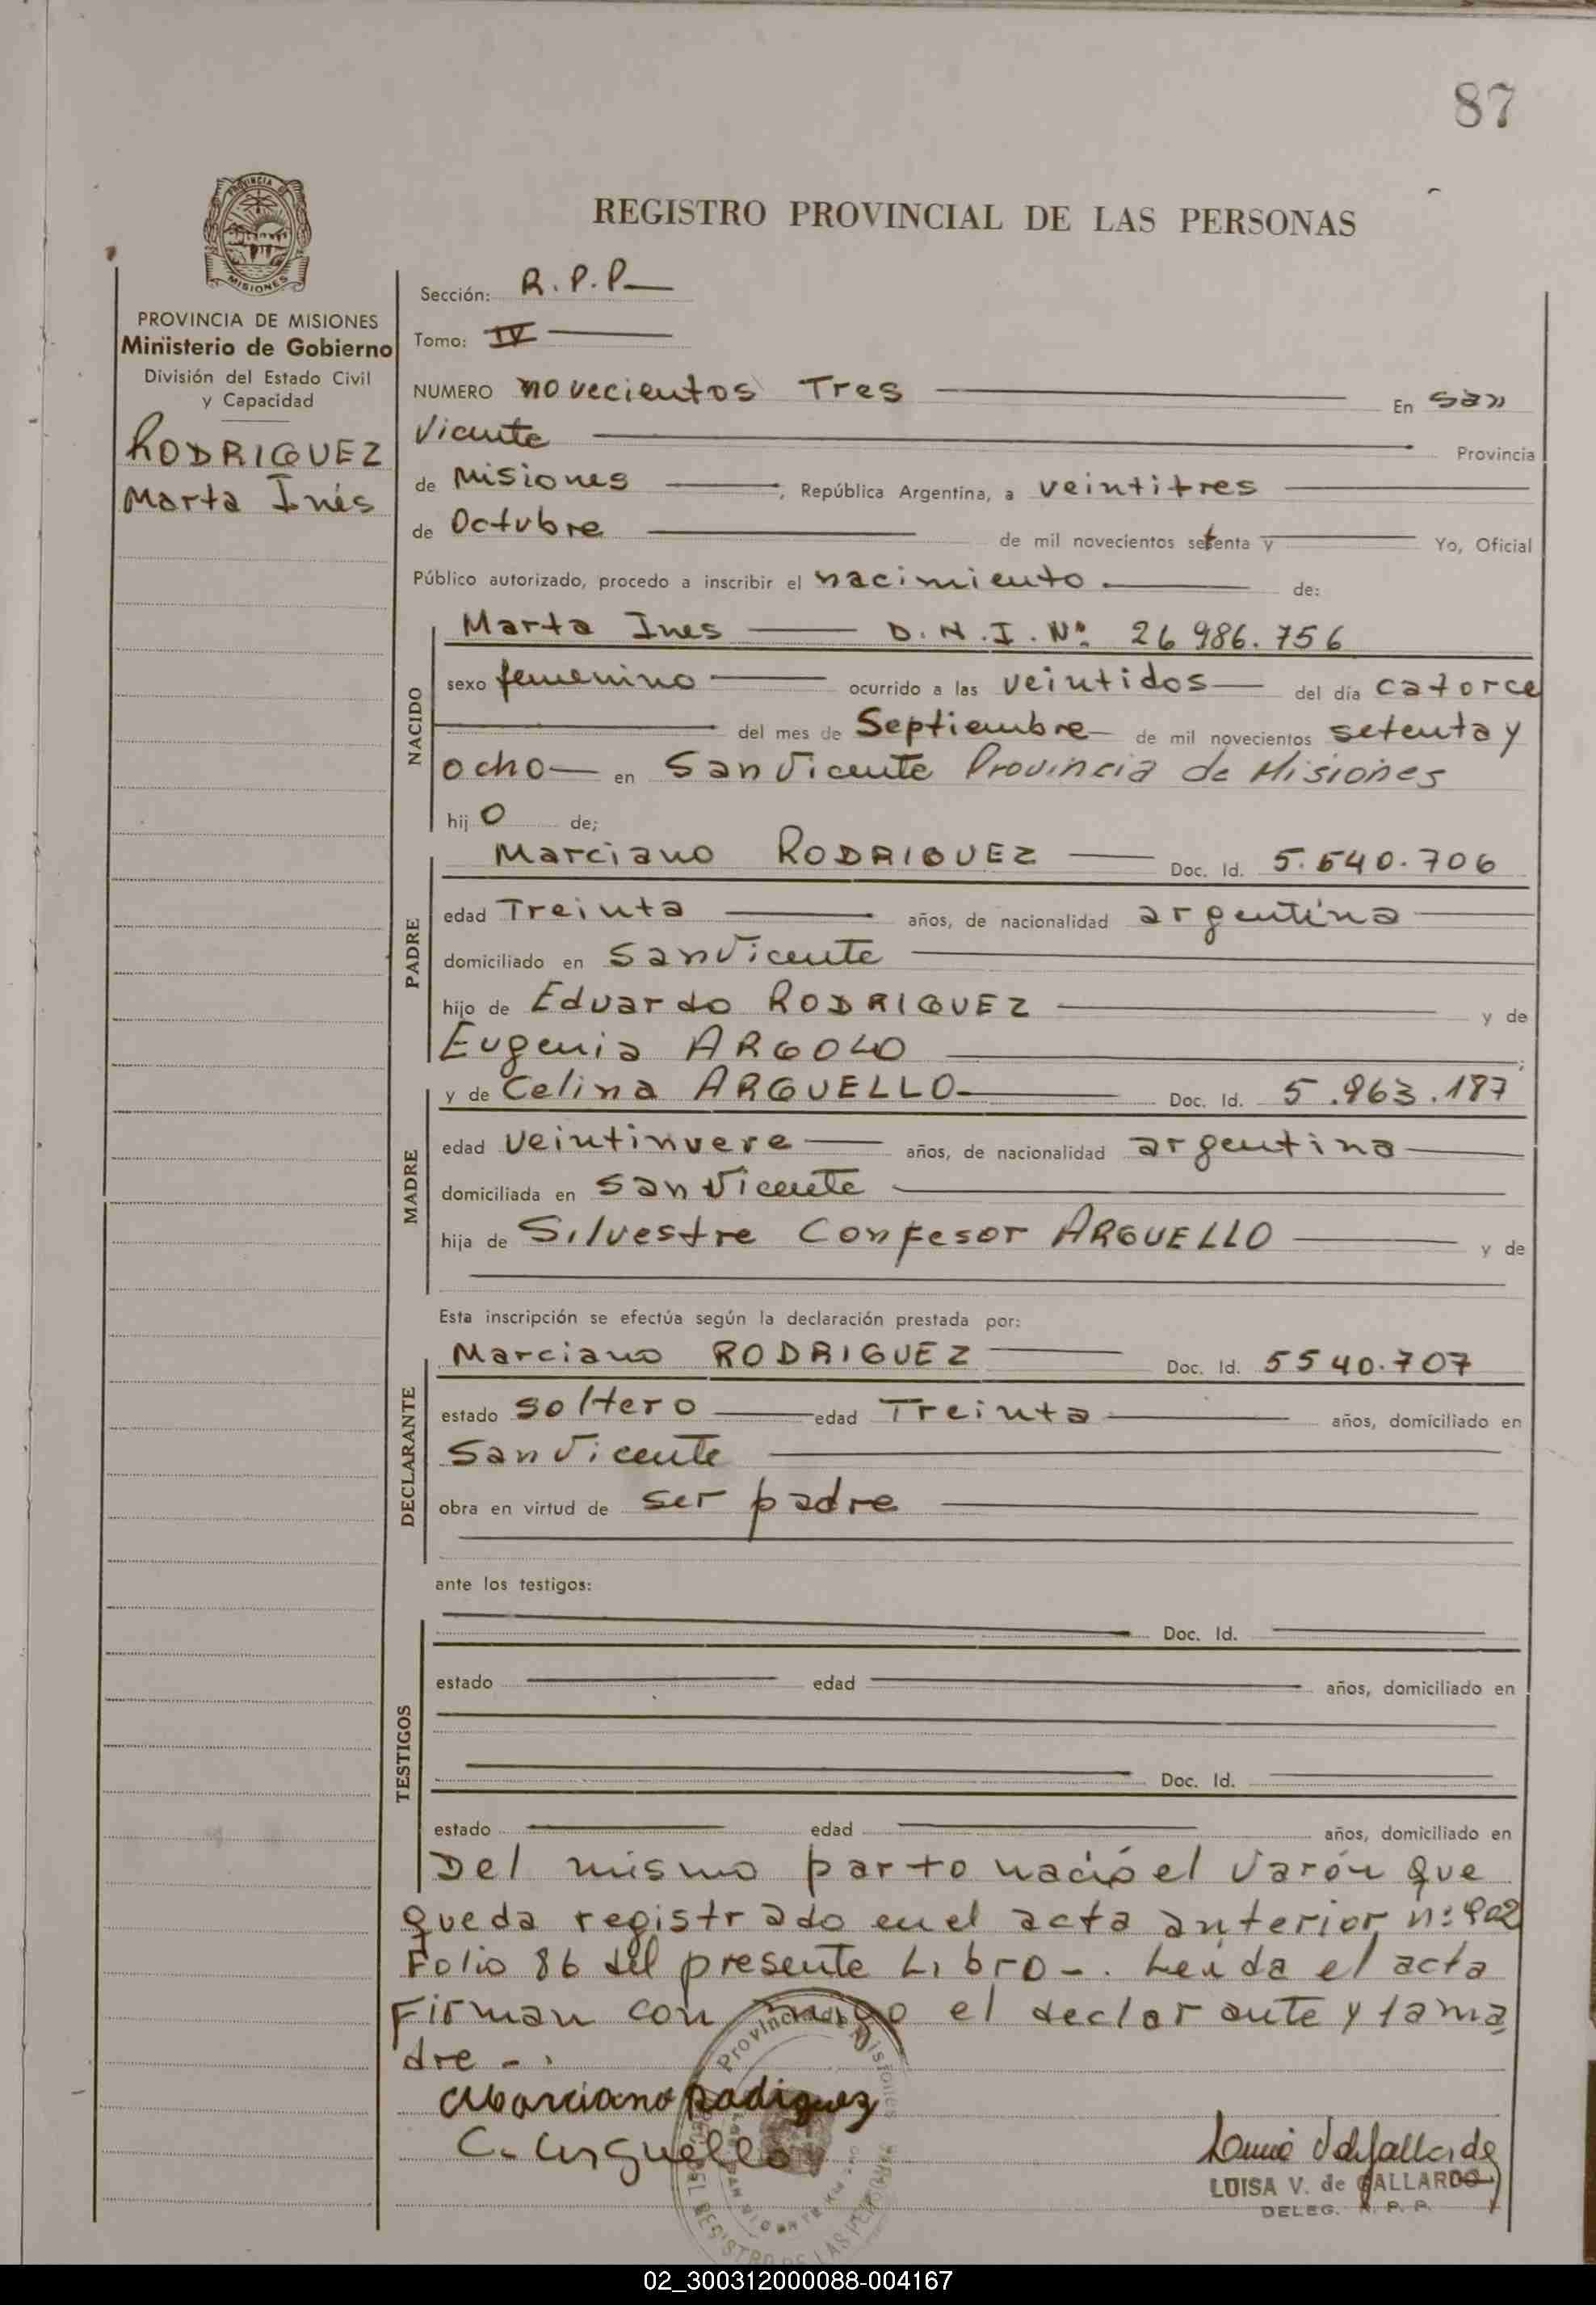 87
PROVINCIA DE
MISIONES
REGISTRO PROVINCIAL DE LAS PERSONAS
PROVINCIA DE MISIONES
Ministerio de Gobierno
División del Estado Civil
y Capacidad
RODRIGUEZ
Marta Inés
Sección: R.P.P.
Tomo: IV
NUMERO novecientos Tres En San
Vicente Provincia
de Misiones, República Argentina, a veintitres
de Octubre de mil novecientos setenta y Yo, Oficial
Público autorizado, procedo a inscribir el nacimiento de:
NACIDO
Marta Ines D.N.I. Nº 26 986.756
sexo femenino ocurrido a las veintidos del día catorce
del mes de Septiembre de mil novecientos setenta y
ocho en San Vicente Provincia de Misiones
hij o de;
PADRE
Marciano RODRIGUEZ Doc. Id. 5.540.706
edad Treinta años, de nacionalidad argentina
domiciliado en San Vicente
hijo de Eduardo RODRIGUEZ y de
Eugenia ARGOLO;
MADRE
y de Celina ARGUELLO Doc. Id. 5.963.187
edad veintinueve años, de nacionalidad argentina
domiciliada en San Vicente
hija de Silvestre Confesor ARGUELLO y de
Esta inscripción se efectúa según la declaración prestada por:
DECLARANTE
Marciano RODRIGUEZ Doc. Id. 5540.707
estado soltero edad Treinta años, domiciliado en
San Vicente
obra en virtud de ser padre
ante los testigos:
TESTIGOS
Doc. Id.
estado edad años, domiciliado en
Doc. Id.
estado edad años, domiciliado en
Del mismo parto nació el varón que
queda registrado en el acta anterior nº 902
Folio 86 del presente Libro-. Leida el acta
Firman con migo el declarante y la ma
dre-.
Marciano Rodiguez
C. Arguello
LUISA V. de GALLARDO
DELEG. R. P. P.
02_300312000088-004167